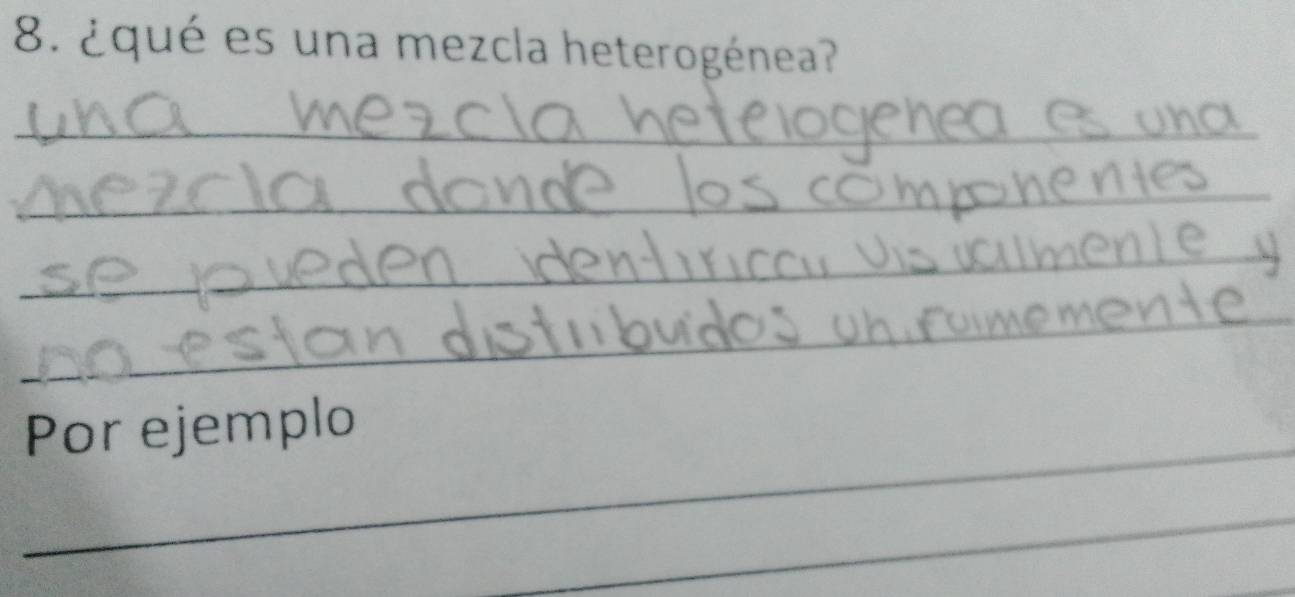 8. ¿qué es una mezcla heterogénea?
una mezcla heterogenea es una
mezcla donde los componentes
se pueden identificar visualmente y
no estan distribuidos uniformemente
Por ejemplo